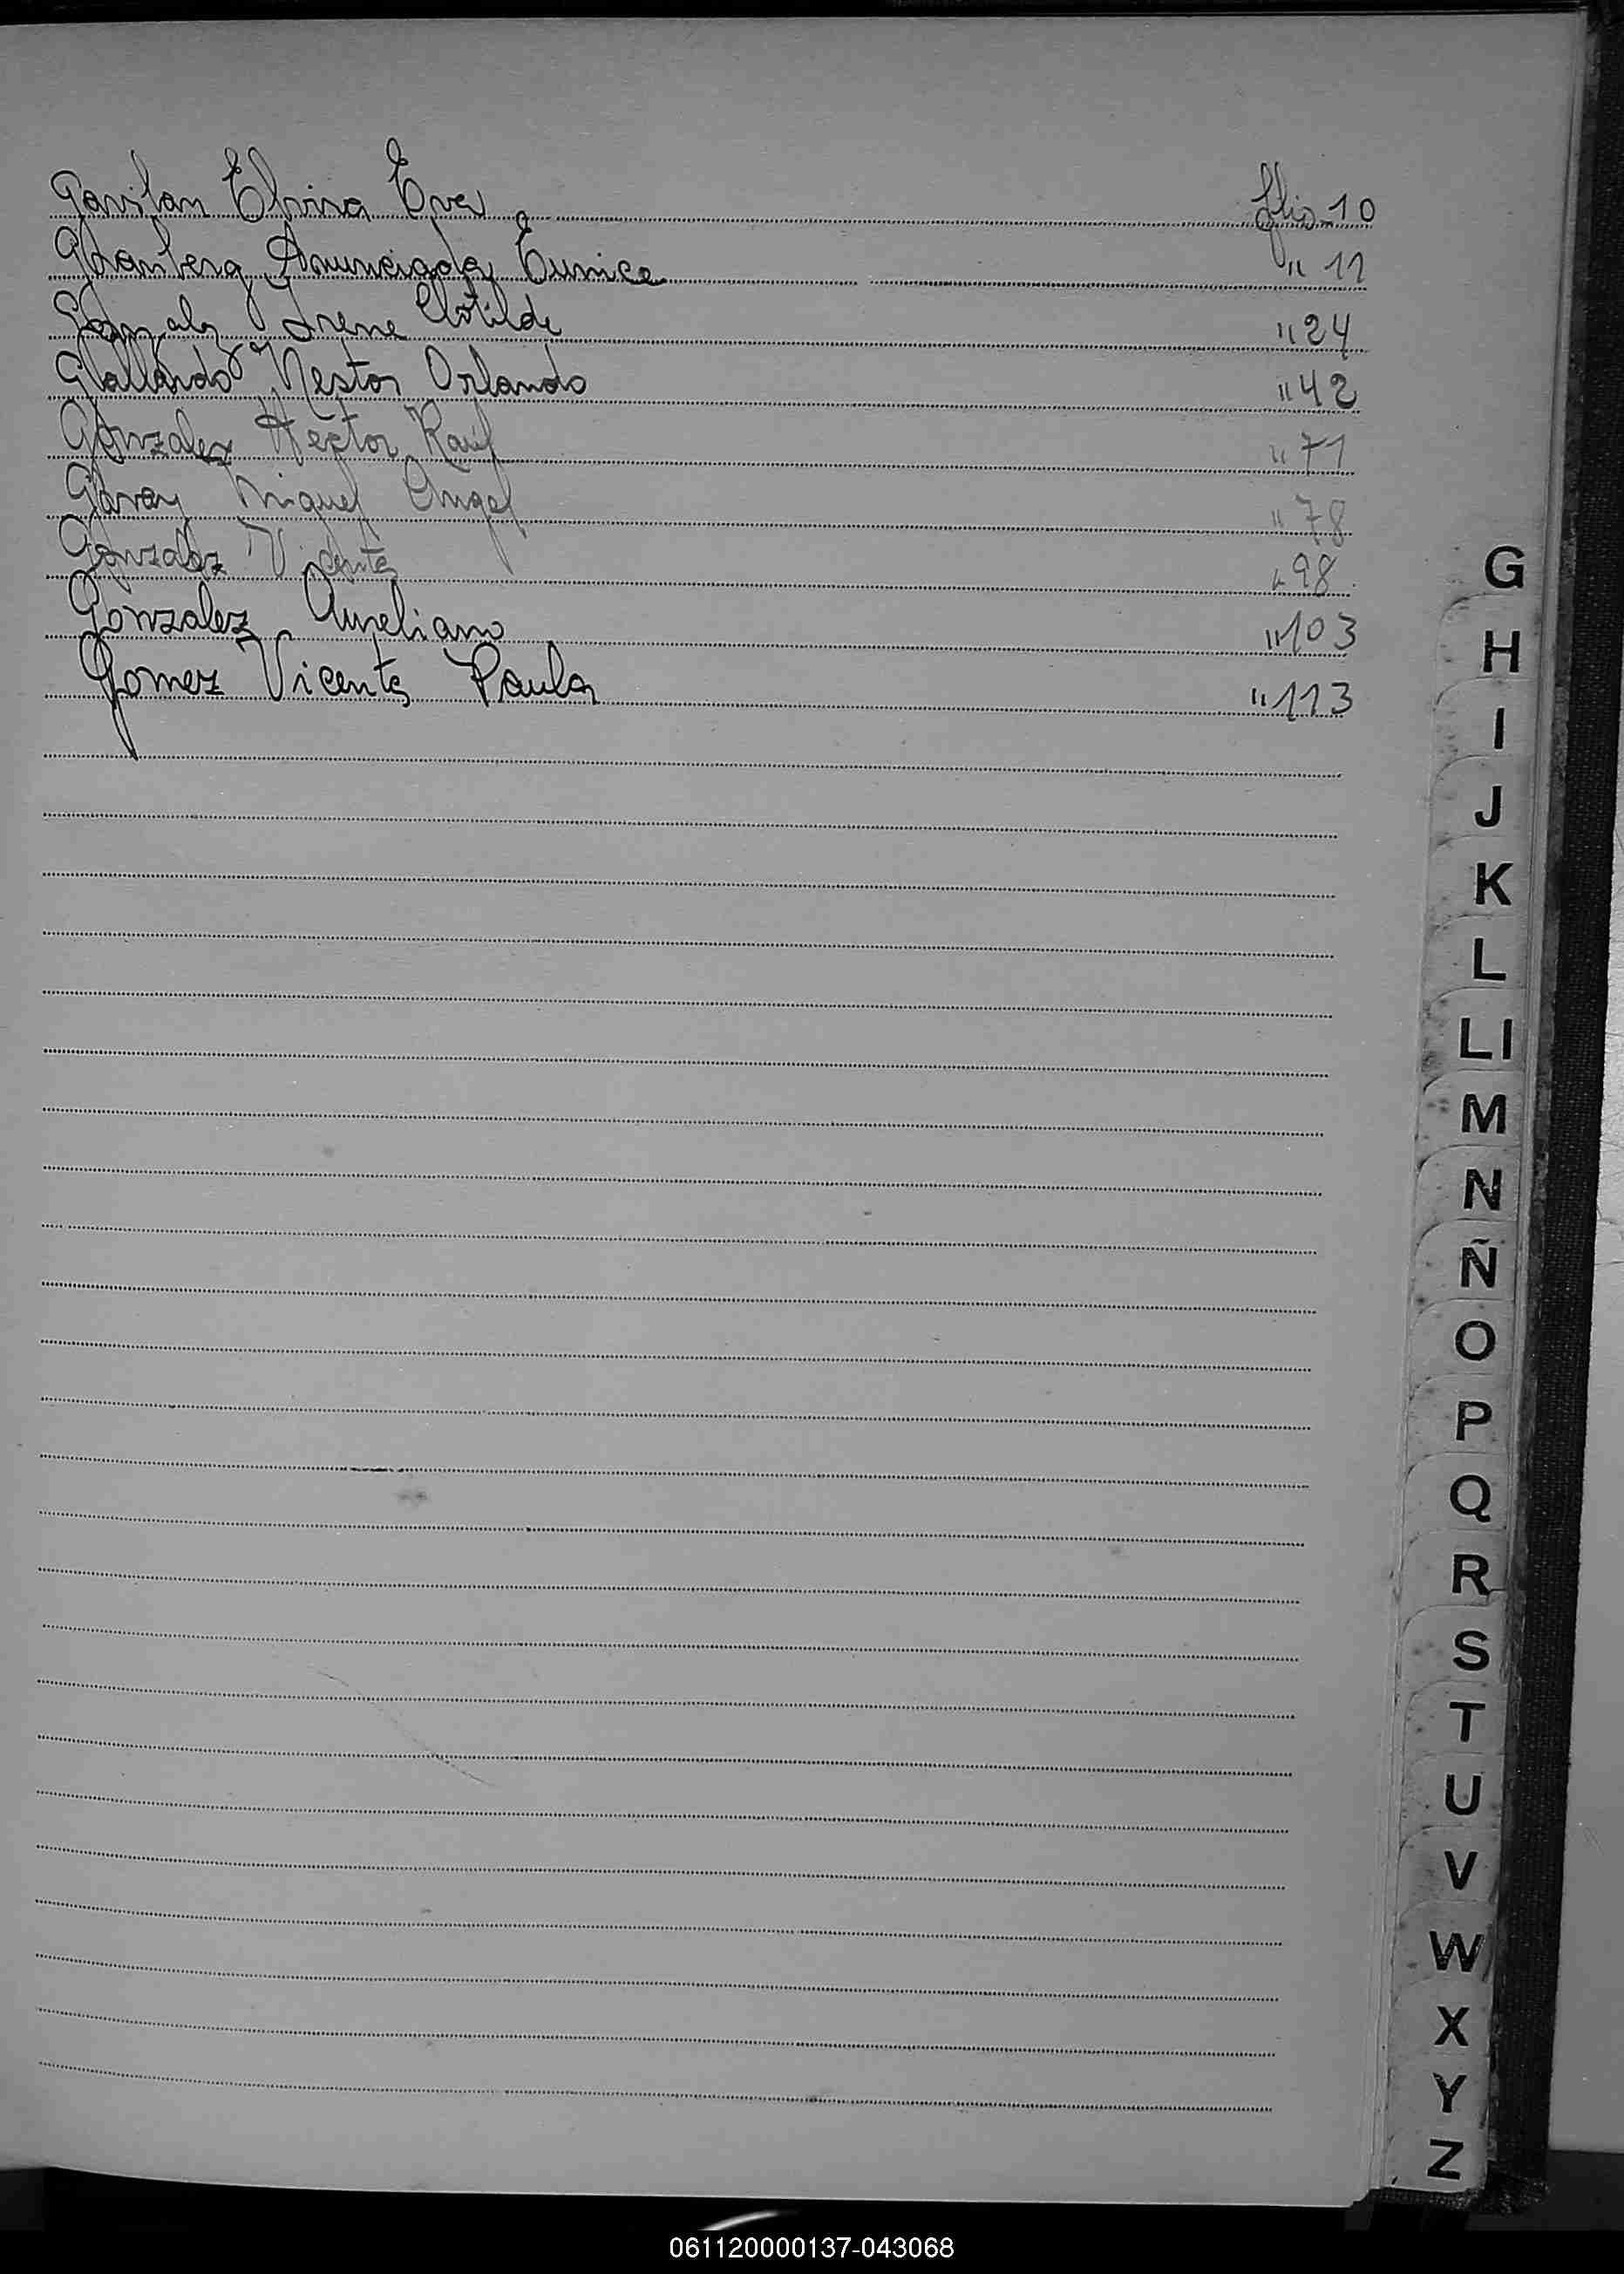 Gavilan Elvira Eva flio 10
Anunciada Eunice " 11
Irene Clotilde " 24
Gallardo Nestor Orlando " 42
Gonzalez Héctor Raúl " 71
Garay Miguel Angel " 78
Gonzalez Vicente " 98
Gonzalez Aureliano " 103
Gomez Vicenta Paula " 113
G
H
I
J
K
L
Ll
M
N
Ñ
O
P
Q
R
S
T
U
V
W
X
Y
Z
061120000137-043068